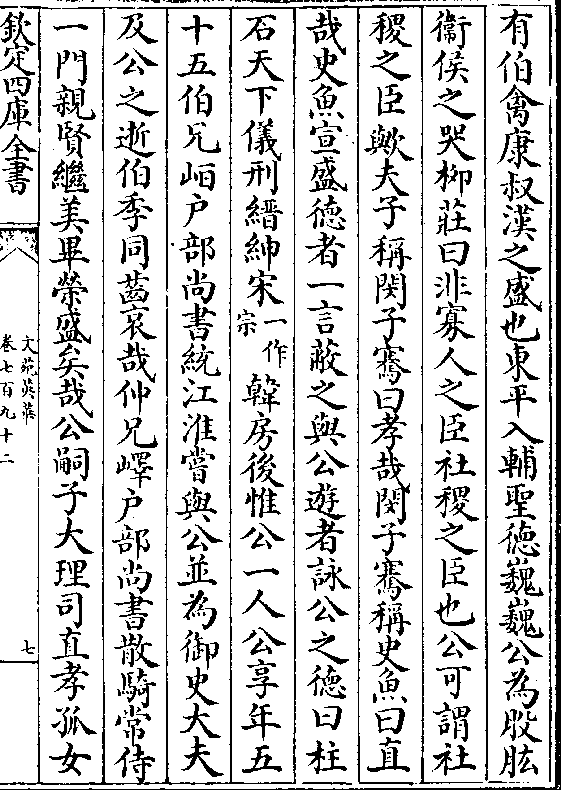 有伯禽康叔漢之盛也東平入輔聖徳巍巍公為股肱
衞侯之哭栁莊曰非寡人之臣社稷之臣也公可謂社
稷之臣歟夫子稱閔子騫曰孝哉閔子騫稱史魚曰直
哉史魚宣盛徳者一言蔽之與公遊者詠公之徳曰柱
石天下儀刑縉紳宋一作宗韓房後惟公一人公享年五
十五伯兄岶户部尚書統江淮嘗與公並為御史大夫
及公之逝伯季同齒哀哉仲兄嶧户部尚書散騎常侍
一門親賢繼美畢榮盛矣哉公嗣子大理司直孝孤女
欽定四庫全書
文苑英華
卷七百九十二
七